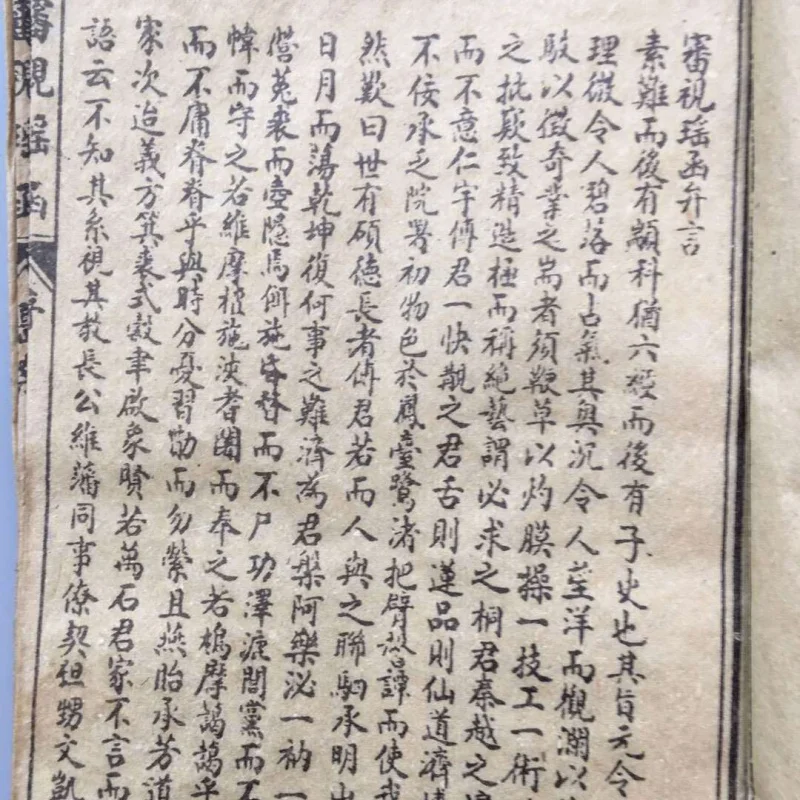 審視瑤函弁言
素難而後有顓科猶六經而後有子史也其旨元令
理微令人碧落而占氣其奧沉令人莖洋而觀瀾以
駁以徵奇業之耑者須鞭草以灼膜操一技工一術
之批窾致精造極而稱絶藝謂必求之桐君秦越之
而不意仁宇傅君一快覩之君舌則蓮品則仙道濟
不佞承乏院署初物色於鳳臺鷺渚把臂放譚而使我
然歎曰世有碩德長者傅君若而人與之聯駟承明出
日月而蕩乾坤復何事之難濟為君槃阿樂泌一衲一
營菟裘而壺隱焉仰施昏瞀而不尸功澤漉閭黨而不
幃而守之若維摩禮施浹者闍而奉之若鳩摩藹藹乎
而不庸脊脊乎與時分憂習勩而勿縈且燕貽承芳道
家次迨義方箕裘式穀聿啟象賢若萬石君家不言而
語云不知其系視其教長公維藩同事僚契祖甥文凱
審視瑤函 序